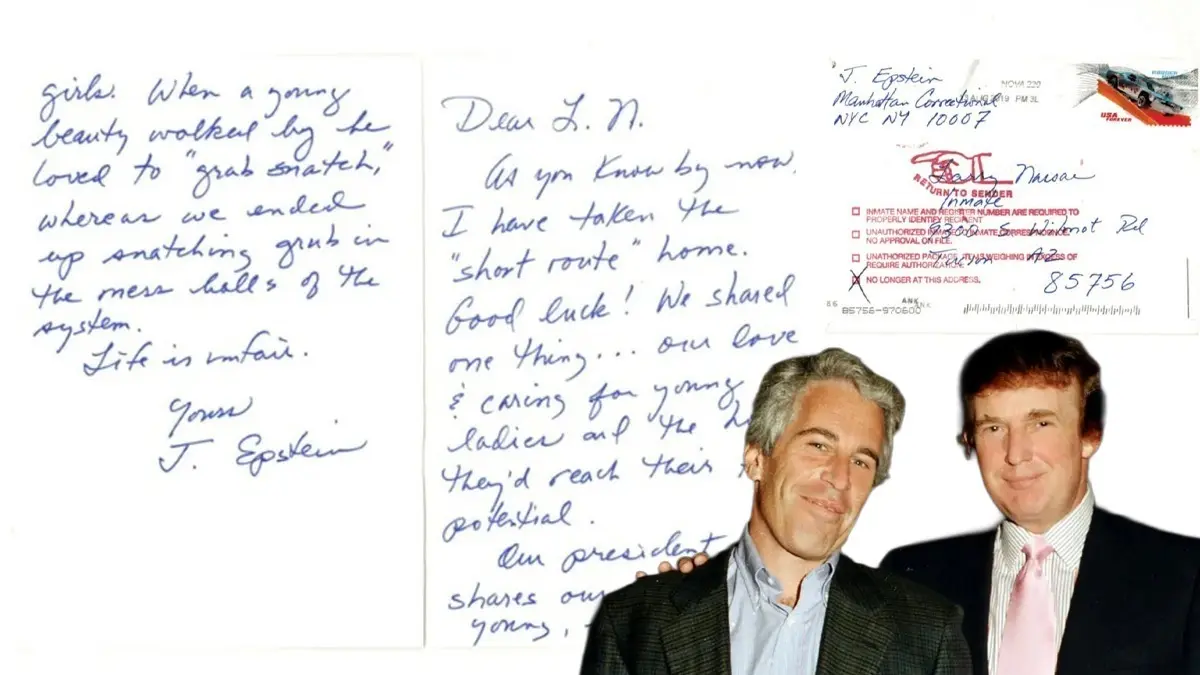 girls. When a young
beauty walked by he
loved to "grab snatch,"
whereas we ended
up snatching grub in
the mess halls of the
system.
Life is unfair.
Yours
J. Epstein
Dear L. N.
As you know by now,
I have taken the
"short route" home.
Good luck! We shared
one thing... our love
& caring for young
ladies and the
they'd reach their
potential.
Our president
shares our
young,
J. Epstein
Manhattan Correctional
NYC NY 10007
NOVA 220
AUG 2019 PM 3L
USA
FOREVER
RETURN TO SENDER
Larry Nassar
Inmate
9300 S. Wilmot Rd
Tucson AZ
85756
INMATE NAME AND REGISTER NUMBER ARE REQUIRED TO
PROPERLY IDENTIFY RECIPIENT
UNAUTHORIZED INMATE TO INMATE CORRESPONDENCE.
NO APPROVAL ON FILE.
UNAUTHORIZED PACKAGE ITEMS WEIGHING IN EXCESS OF
REQUIRE AUTHORIZATION.
NO LONGER AT THIS ADDRESS.
ANK
85756-970600